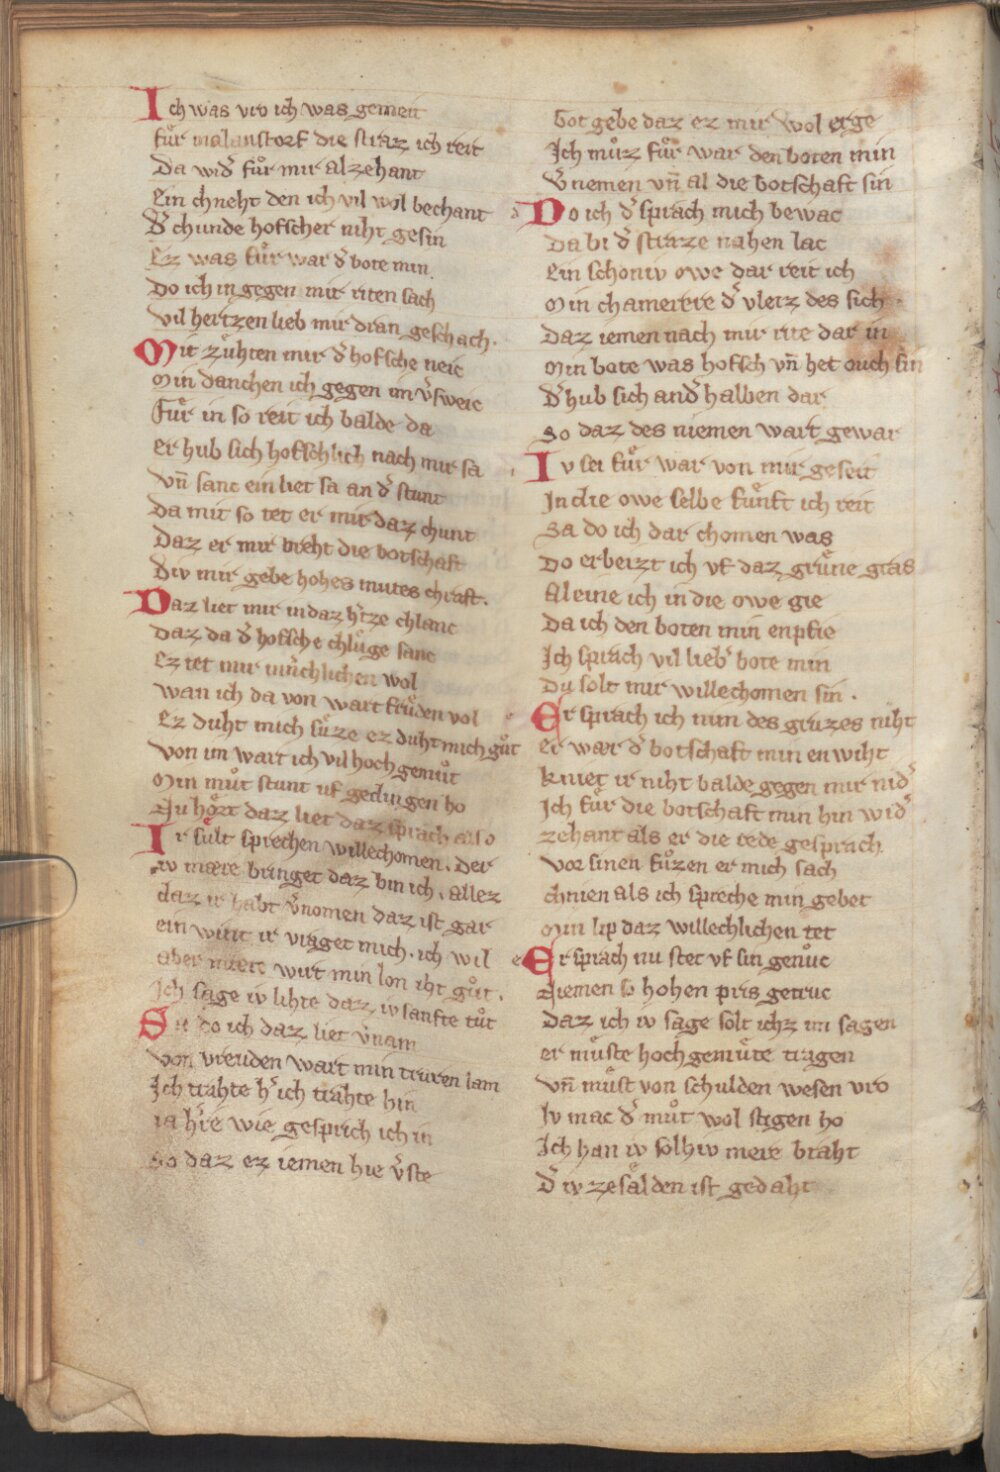 Ich was vro ich was gemeit
fuͤr malanstorf die straz ich reit
Da wid͛ fuͦr mir alzehant
Ein chneht den ich vil wol bechant
D͛ chunde hofscher niht gesin
Ez was fuͤr war d͛ bote min.
Do ich in gegen mir riten sach
vil hertzen lieb mir dran geschach.
Mit zuͤhten mir d͛ hofsche neic
Min danchen ich gegen im v͛sweic
Fuͤr in so reit ich balde da
er hub sich hofschlich nach mir sa
vn̄ sanc ein liet sa an d͛ stunt
Da mit so tet er mir daz chunt
Daz er mir breht die botschaft
Div mir gebe hohes mutes chraft.
Daz liet mir in daz h͛tze chlanc
Daz da d͛ hofsche chluͦge sanc
Ez tet mir innchlichen wol
wan ich da von wart freuden vol
Ez duht mich suͤze ez duht mich guͦt
von im wart ich vil hoch gemuͦt
Min muͦt stunt uf gedingen ho
Nu hoͤrt daz liet daz sprach also
Ir sult sprechen willechomen. Der
iv mære bringet daz bin ich. allez
daz ir habt v͛nomen daz ist gar
ein wint ir vraget mich. ich wil
aber miete wirt min lon iht guͦt.
Ich sage iv lihte daz iv sanfte tuͦt
Sit do ich daz liet v͛nam
von vreuden wart min truren lam
Ich trahte h͛ ich trahte hin
ia h͛re wie gesprich ich in
So daz ez iemen hie v͛ste
Got gebe daz ez mir wol erge
Ich muͦz fuͤr war den boten min
V͛nemen vn̄ al die botschaft sin
Do ich d͛ sprach mich bewac
Da bi d͛ straze nahen lac
Ein schoniv owe dar reit ich
Min chamerere d͛ vleiz des sich.
Daz iemen nach mir rite dar in
Min bote was hofsch vn̄ het ouch sin
D͛ hub sich and͛halben dar
So daz des niemen wart gewar
Iv sei fuͤr war von mir geseit
In die owe selbe fuͤnft ich reit
Sa do ich dar chomen was
Do erbeizt ich vf daz gruͤne gras
Aleine ich in die owe gie
Da ich den boten min enpfie
Ich sprach vil lieb͛ bote min
Du solt mir willechomen sin.
Er sprach ich nim des gruzes niht
ez wær d͛ botschaft min enwiht
kniet ir niht balde gegen mir nid͛
Ich fuͤr die botschaft min hin wid͛
zehant als er die rede gesprach
vor sinen fuͤzen er mich sach
chnien als ich spreche min gebet
Min lip daz willechlichen tet
Er sprach nu stet vf sin genuͦc
Niemen so hohen pris getruc
Daz ich iv sage solt ichz im sagen
er muͤste hoch gemuͤte tragen
vn̄ muͤst von schulden wesen vro
Iv mac d͛ muͦt wol stigen ho
Ich han iv solhiv mere braht
D͛ iv ze sælden ist gedaht